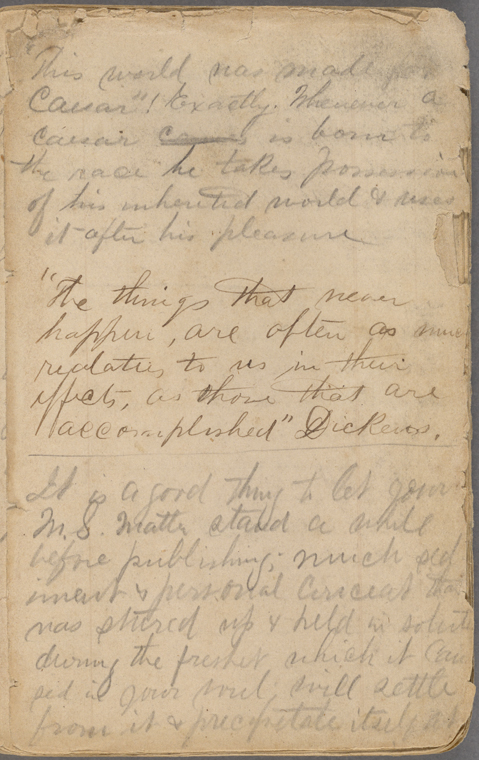 This world was made for
Caesar"! Exactly. Whenever a
caesar comes is born to
the race he takes possession
of his inherited world & uses
it after his pleasure
"The things that never
happen, are often as much
realities to us in their
effects, as those that are
accomplished" Dickens.
It is a good thing to let your
M.S. matter stand a while
before publishing; much sed
iment & personal conceit that
was stirred up & held in solution
during the freshet which it cau
sed in your soul, will settle
from it & precipetate itself at